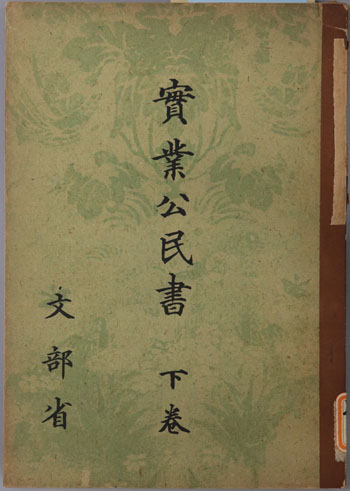 實業公民書 下卷
文部省